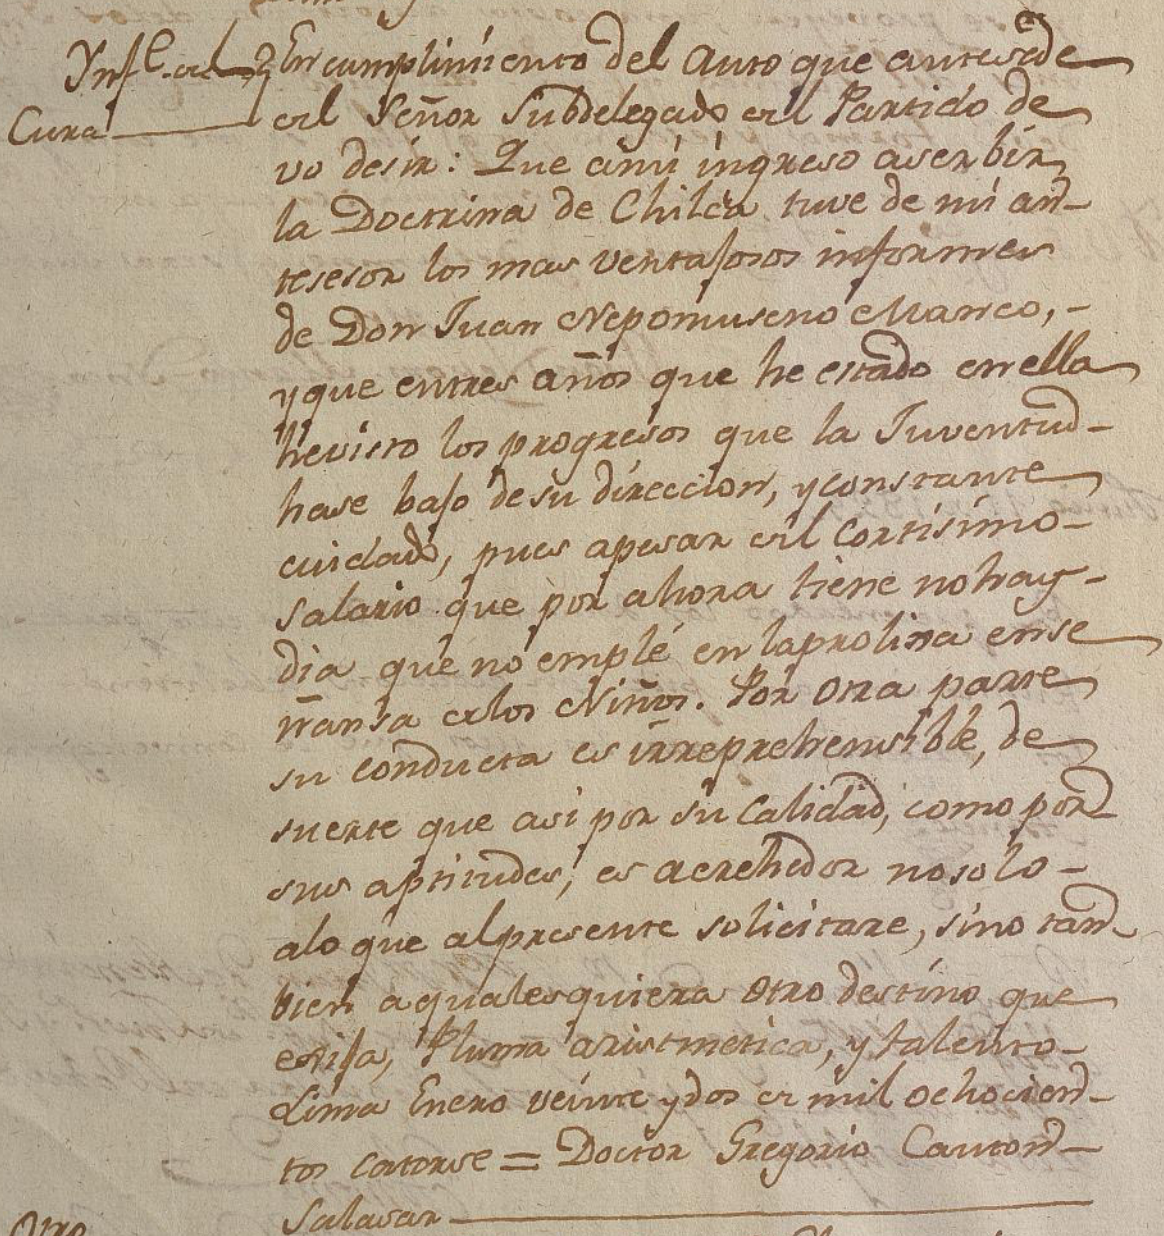 Ynf.e del
Cura
En cumplimiento del auto que antesede
del Señor Subdelegado del Partido de
vo desir: Que ami ingreso aserbir
la Doctrina de Chilca tuve de mi an-
tesesor los mas ventajosos informes
de Don Juan Nepomuseno Manco,-
y que entres años que he estado en ella
hevisto los progresos que la Juventud-
hase bajo de su direccion, y constante
cuidado, pues apesar del Cortisimo-
Salario que por ahora tiene no hay-
dia que no emplé en laprolixa ense
ñansa delos Niños. Por otra parte
su conducta es irreprehensible, de
suerte que asi por su Calidad, como por
sus aptitudes, es acrehedor nosolo-
alo que alpresente solicitare, sino tam
bien aqualesquiera otro destino que
exija, Pluma aristmetica, y talento-
Lima Enero veinte ydos de mil ochocien-
tos catorse = Doctor Gregorio Canton-
Salasar
Otro